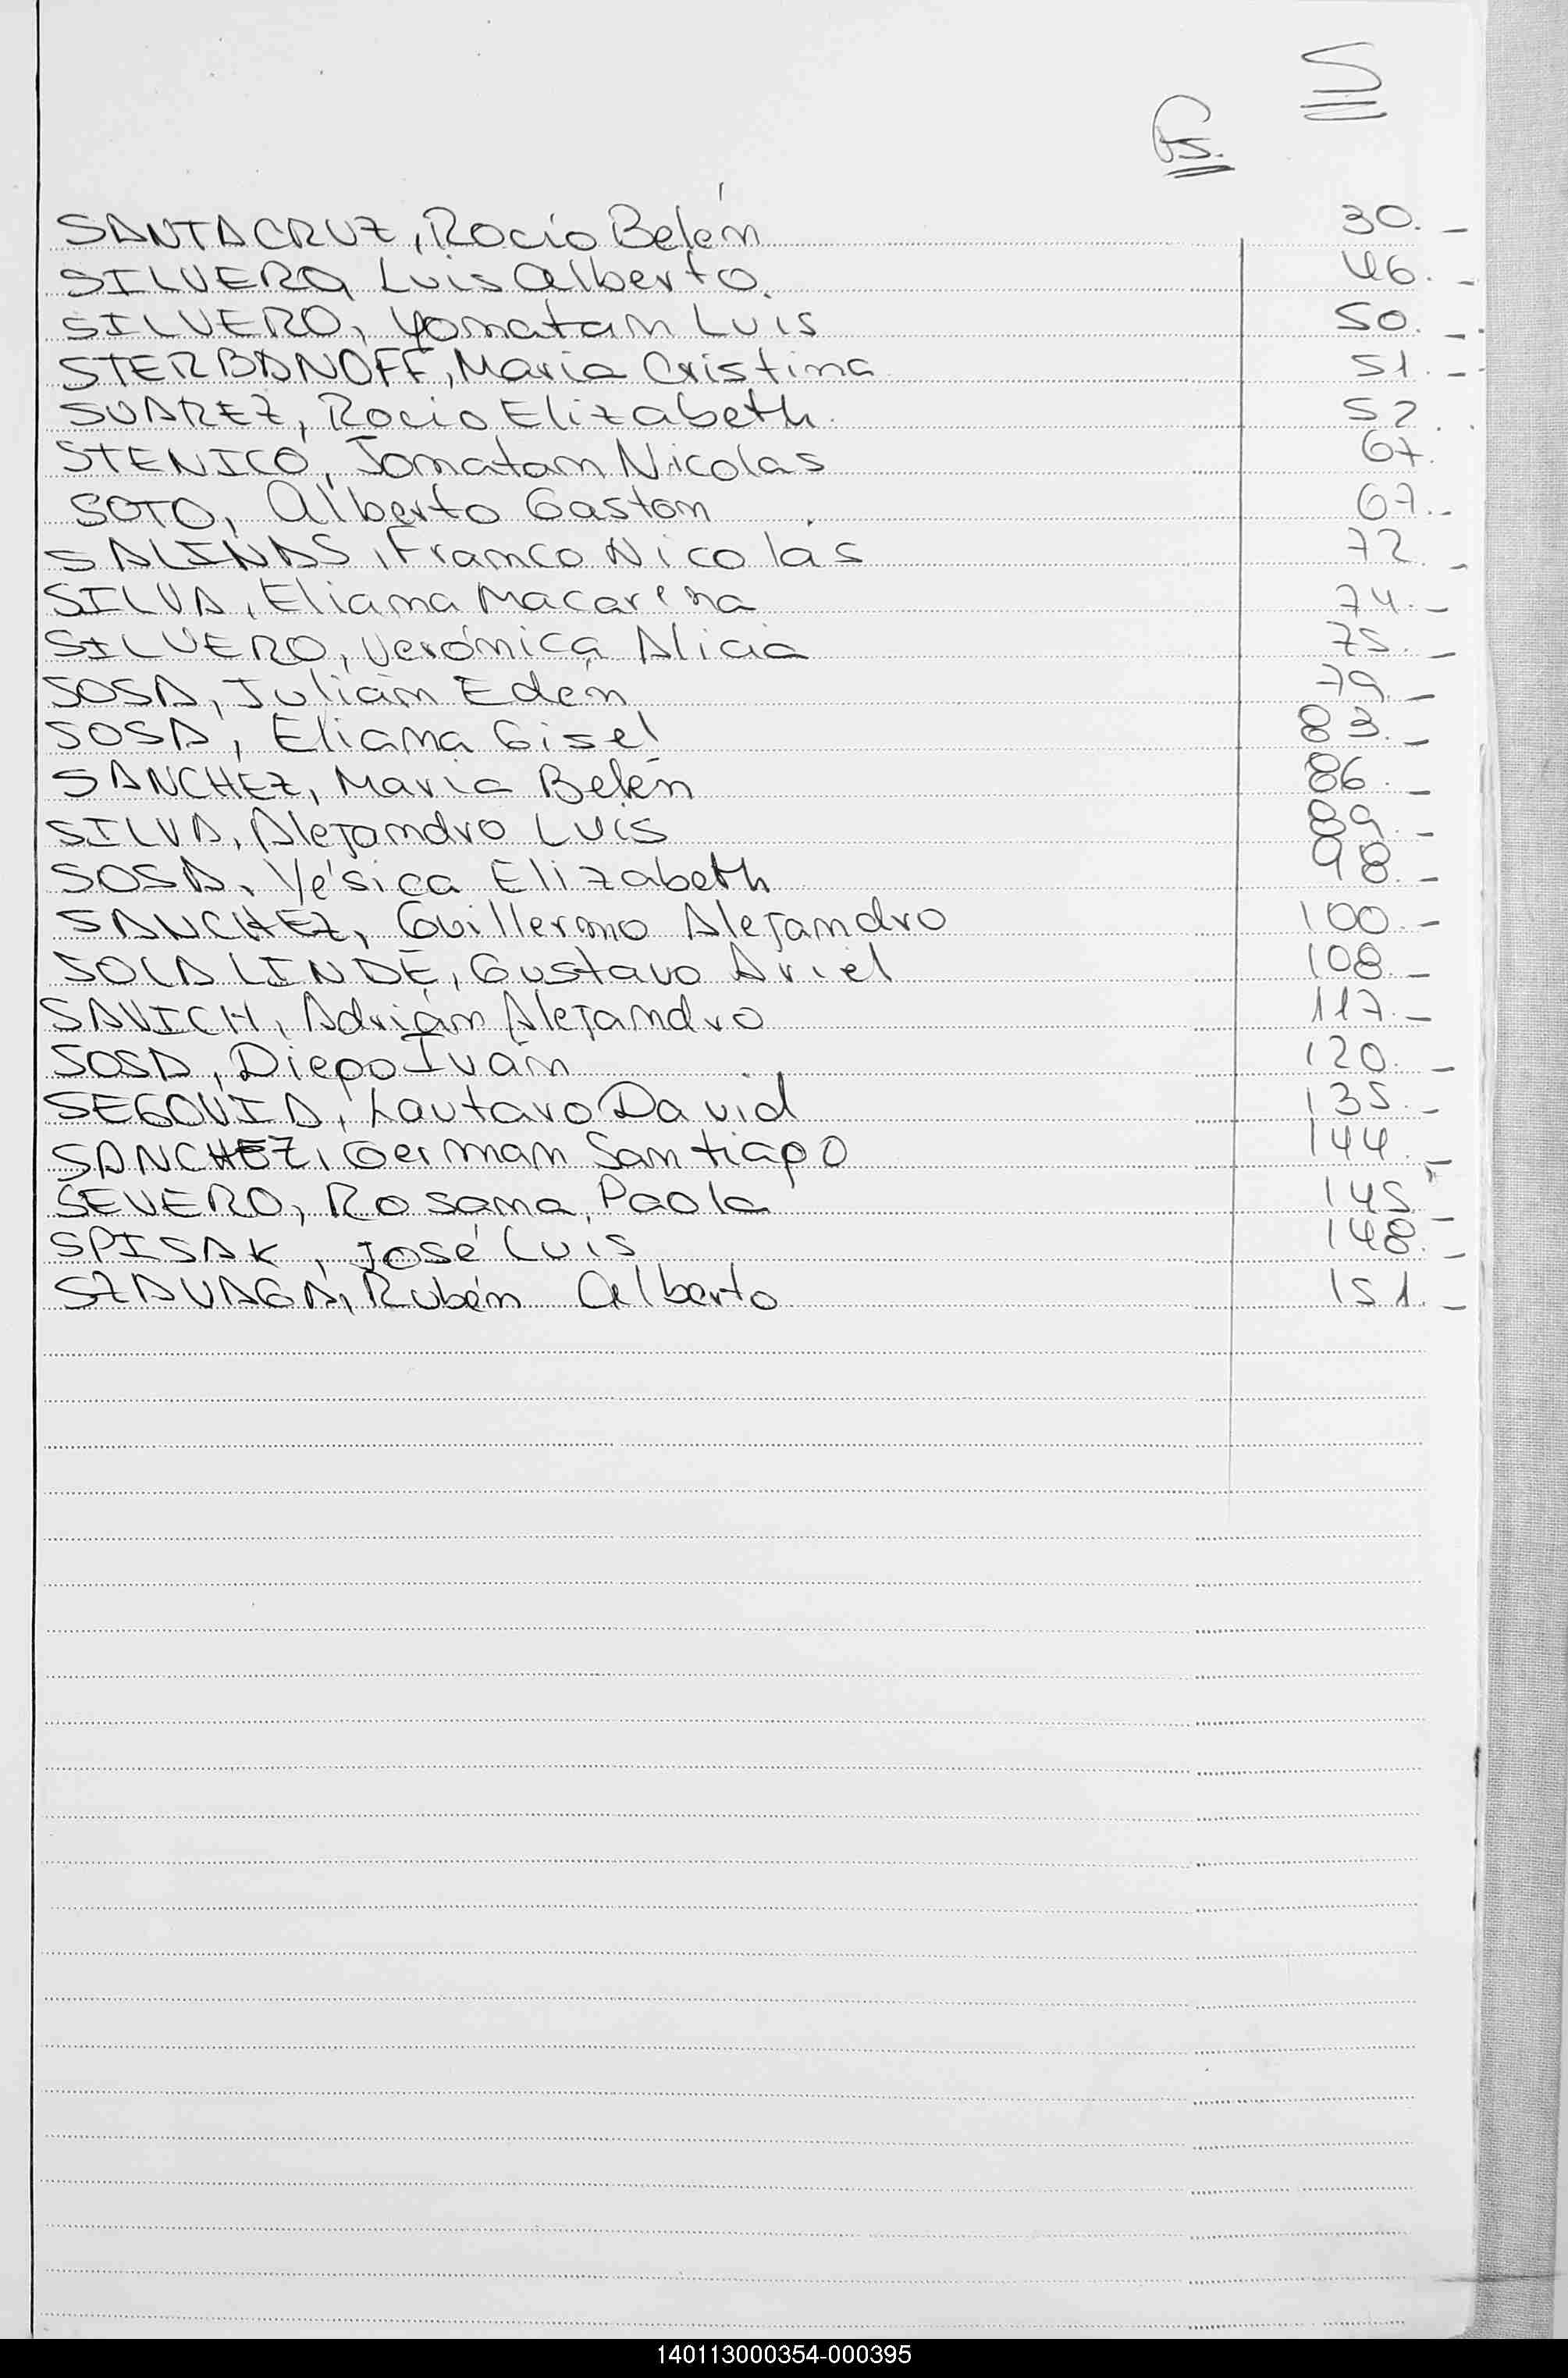 S
Fs.
SANTACRUZ, Rocío Belén 30.-
SILVERO, Luis Alberto. 46.-
SILVERO, Yonatan Luis 50.-
STERBANOFF, Maria Cristina 51.-
SUAREZ, Rocio Elizabeth. 52.
STENICO, Jonatan Nicolas 67.
SOTO, Alberto Gaston 67.-
SALINAS, Franco Nicolas 72.-
SILVA, Eliana Macarena 74.-
SILVERO, Verónica Alicia 75.-
SOSA, Julián Edén 79.-
SOSA, Eliana Gisel 83.-
SANCHEZ, Maria Belén 86.-
SILVA, Alejandro Luis 89.-
SOSA, Yésica Elizabeth 98.-
SANCHEZ, Guillermo Alejandro 100.-
SOLALINDE, Gustavo Ariel 108.-
SAVICH, Adrián Alejandro 117.-
SOSA, Diego Iván 120.-
SEGOVIA, Lautaro David 135.-
SANCHEZ, German Santiago 144.-
SEVERO, Rosana Paola 145.-
SPISAK, José Luis 148.-
SZAVAGA, Rubén Alberto 151.-
140113000354-000395